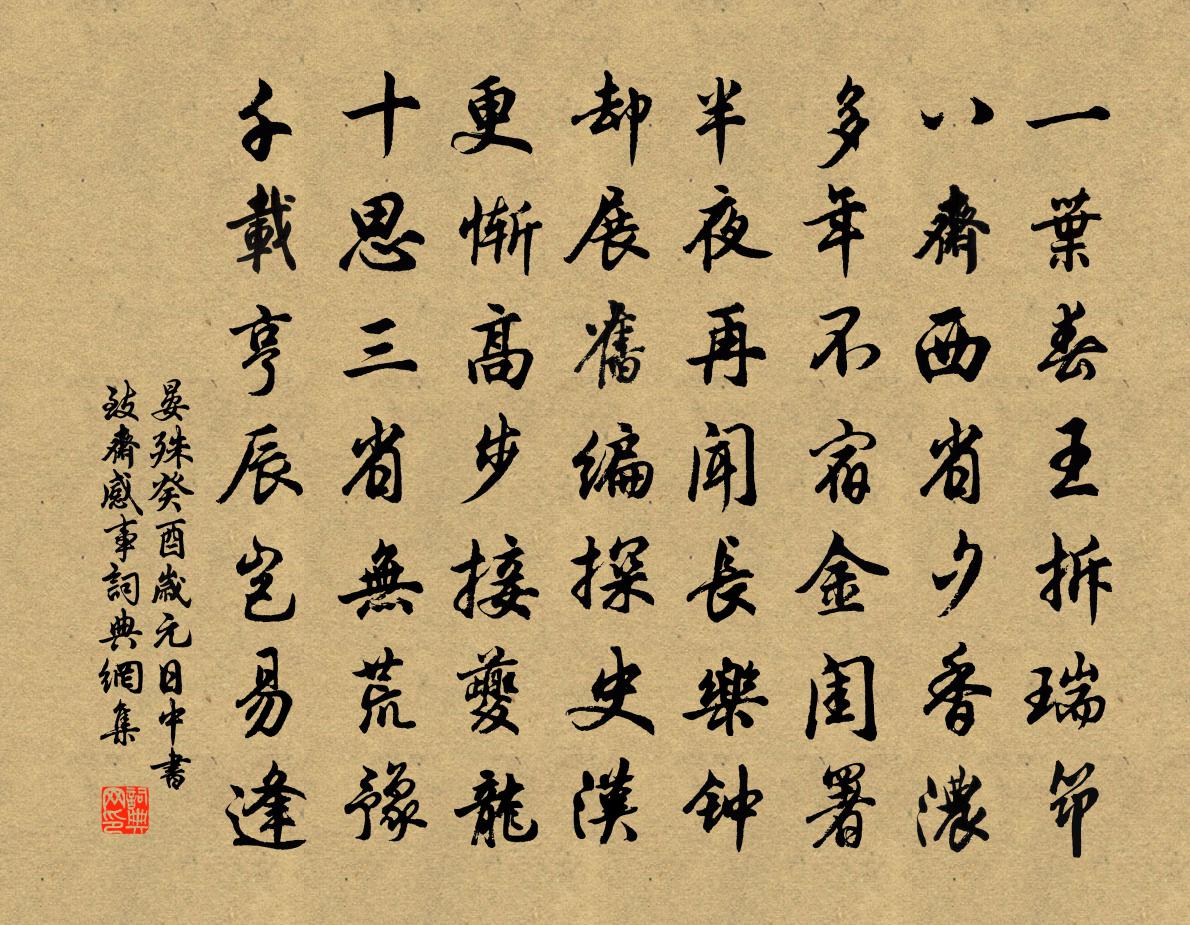 一葉春王拆瑞節
八齋西省夕香濃
多年不宿金閨署
半夜再聞長樂钟
却展舊編探史漢
更慚高步接夔龍
十思三省無荒豫
千載亨辰豈易逢
晏殊癸酉歲元日中書
致齋感事詞典網集
詞典
网印